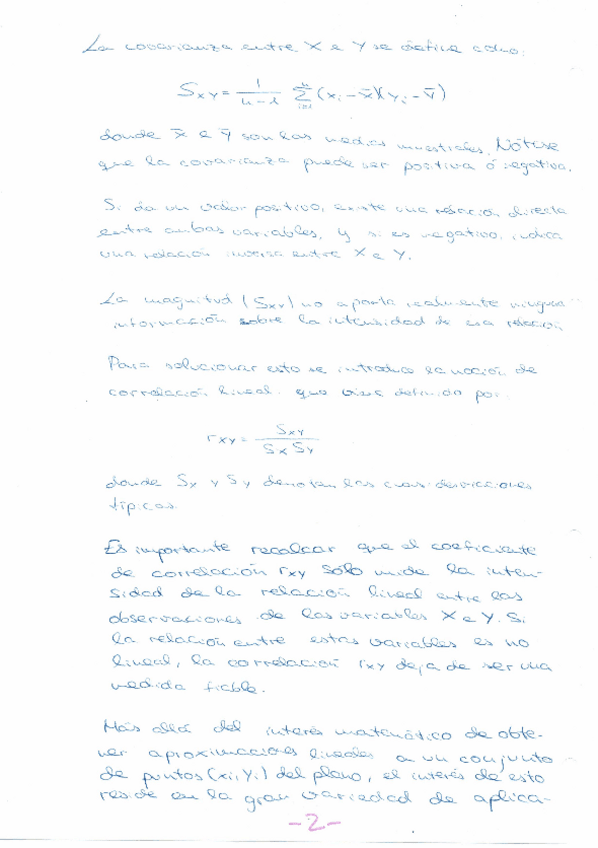 La covarianza entre X e Y se define como:
S_xy = 1/(n-1) Σ_{i=1}^{n} (x_i - x̄)(y_i - ȳ)
donde x̄ e ȳ son las medias muestrales. Nótese
que la covarianza puede ser positiva ó negativa.
Si da un valor positivo, existe una relación directa
entre ambas variables, y si es negativo, indica
una relación inversa entre X e Y.
La magnitud (S_xy) no aporta realmente ninguna
información sobre la intensidad de esa relación
Para solucionar esto se introduce la noción de
correlación lineal, que viene definida por:
r_xy = S_xy / (S_x S_y)
donde S_x y S_y denotan las cuasidesviaciones
típicas.
Es importante recalcar que el coeficiente
de correlación r_xy sólo mide la inten-
sidad de la relación lineal entre las
observaciones de las variables X e Y. Si
la relación entre estas variables es no
lineal, la correlación r_xy deja de ser una
medida fiable.
Más allá del interés matemático de obte-
ner aproximaciones lineales a un conjunto
de puntos (x_i, y_i) del plano, el interés de esto
reside en la gran variedad de aplica-
-2-